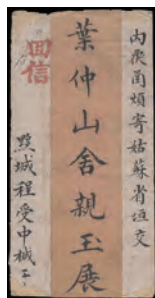 內候函煩寄姑蘇省垣交
葉仲山舍親玉展
回信
黟城程受申椷